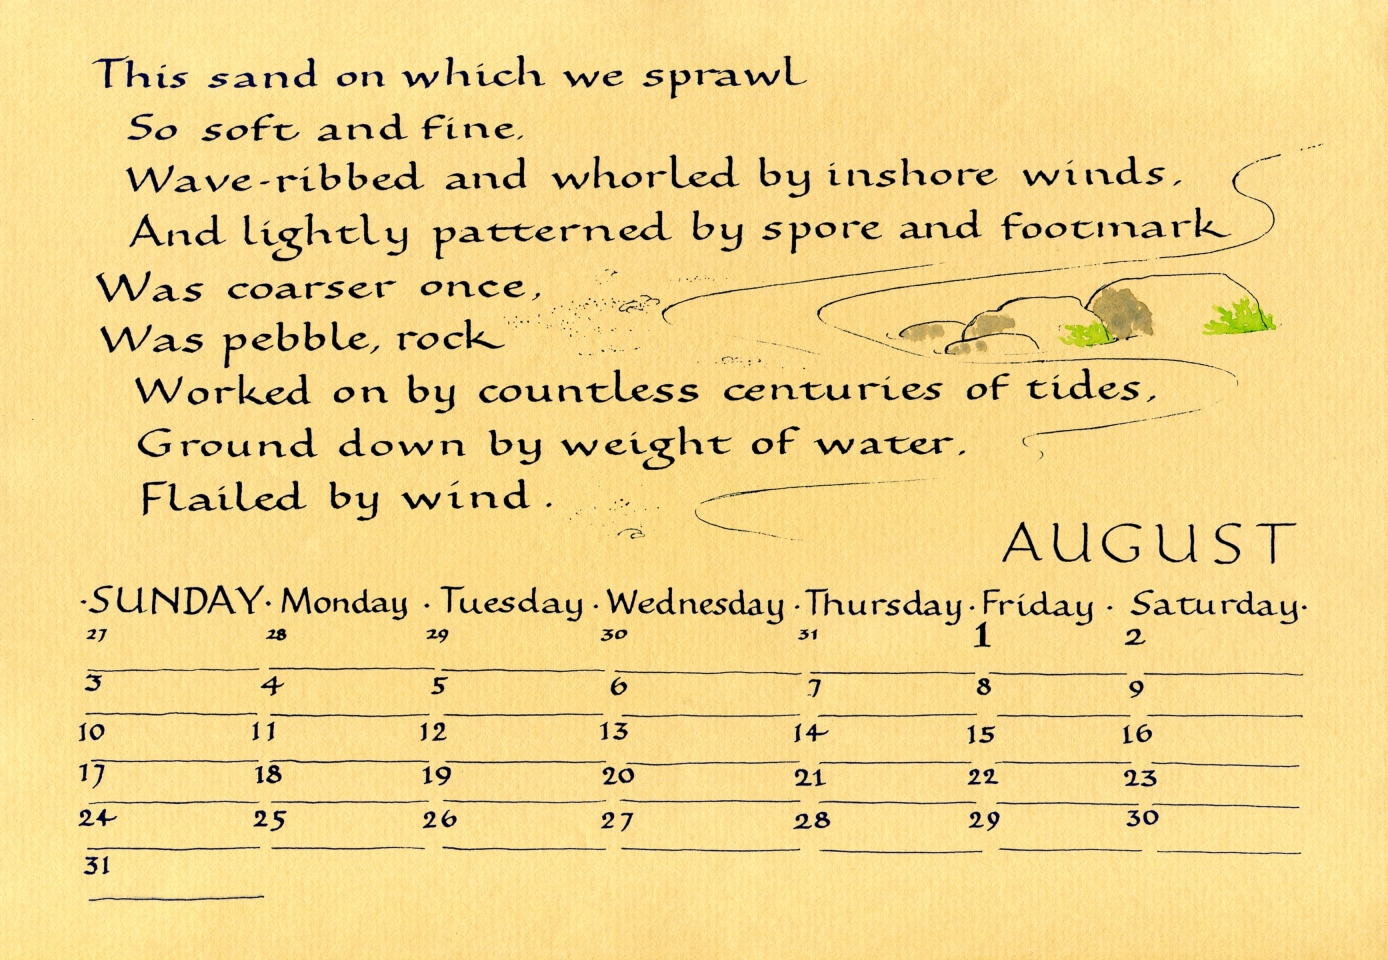 This sand on which we sprawl
So soft and fine,
Wave-ribbed and whorled by inshore winds,
And lightly patterned by spore and footmark
Was coarser once,
Was pebble, rock
Worked on by countless centuries of tides,
Ground down by weight of water,
Flailed by wind.
AUGUST
·SUNDAY· Monday · Tuesday · Wednesday · Thursday · Friday · Saturday·
27 28 29 30 31 1 2
3 4 5 6 7 8 9
10 11 12 13 14 15 16
17 18 19 20 21 22 23
24 25 26 27 28 29 30
31